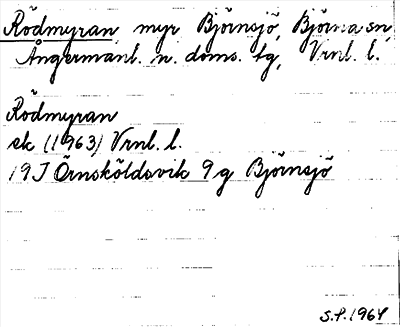 Rödmyran, myr Björnsjö, Björna sn,
Ångermanl. n. doms. tg, Vrnl. l.
Rödmyran
ek (1963) Vrnl. l.
19J Örnsköldsvik 9g Björnsjö
S.P. 1964